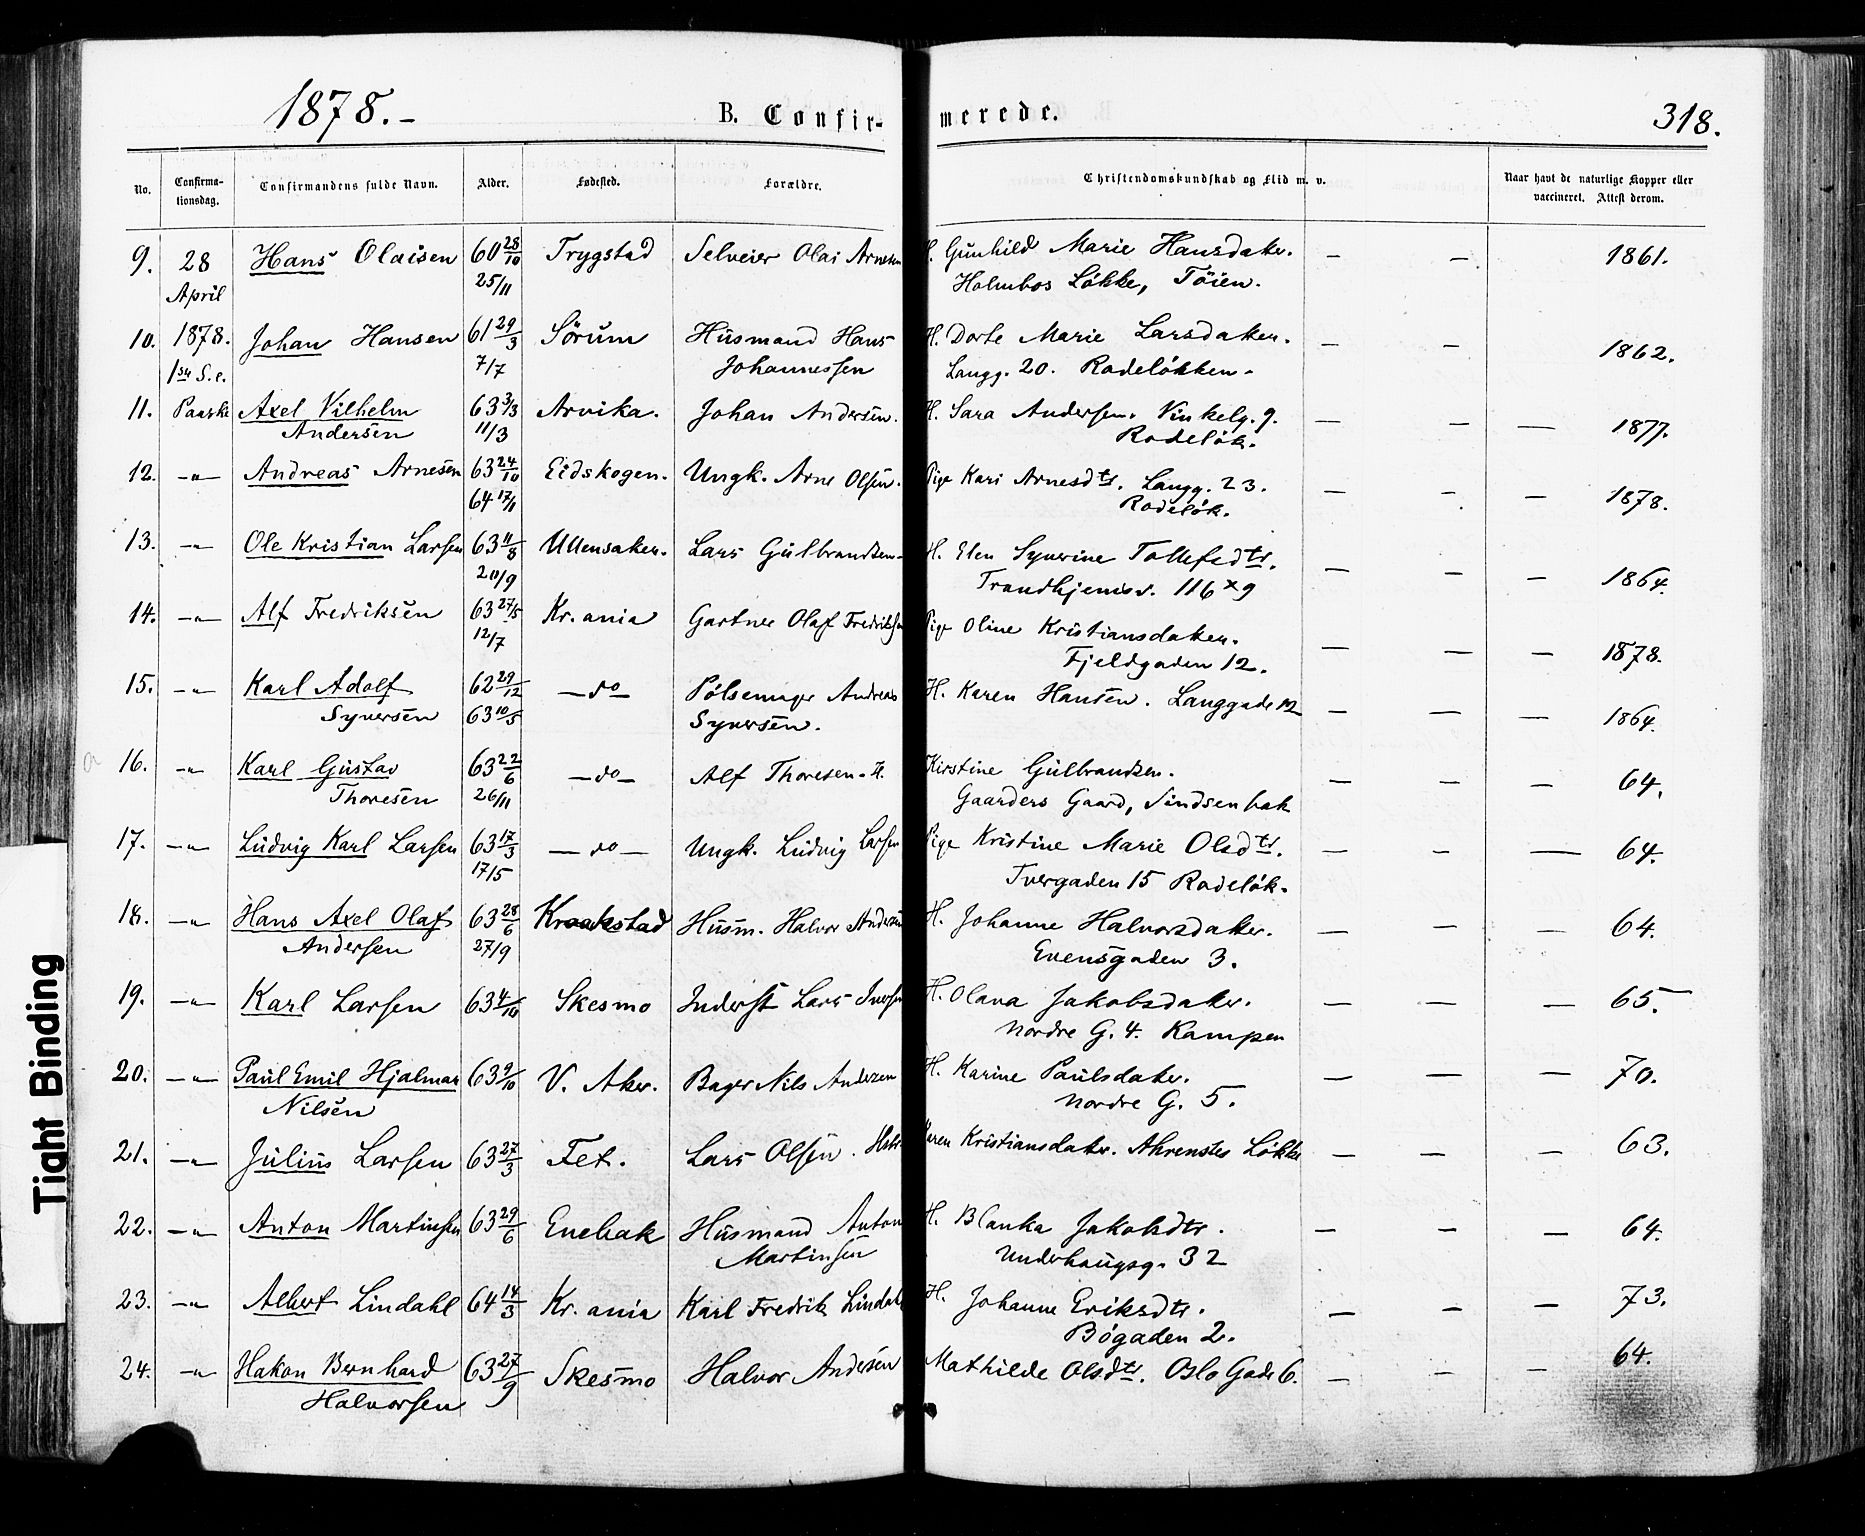 1878.-
B. Confir-
merede.
318.
No.
Confirma-
tionsdag.
Confirmandens fulde Navn.
Alder.
Fødested.
Forældre.
Christendomskundskab og Flid m. v.
Naar havt de naturlige Kopper eller
vaccineret. Attest derom.
9. 28 Hans Olaisen 60 28/10 Trygstad Selveier Olai Arnesen H. Gunhild Marie Hansdaker. — — 1861.
April 25/11 Holmbos Løkke, Tøien.
10. 1878. Johan Hansen 61 29/3 Sørum Husmand Hans H. Dorte Marie Larsdaker. — — 1862.
1ste S. e. 7/7 Johannessen Langg. 20. Rodeløkken -
11. Paaske Axel Vilhelm 63 3/3 Arvika. Johan Andersen. H. Sara Andersen. Vinkelg. 9. — — — 1877.
Andersen 11/3 Rodeløk.
12. -"- Andreas Arnesen 63 24/10 Eidskogen. Ungk. Arne Olsen. Pige Kari Arnesdtr. Langg. 23. — - — 1878.
64 17/11 Rodeløk.
13. -"- Ole Kristian Larsen 63 11/8 Ullensaker. Lars Gulbrandsen. H. Elen Syverine Tollefsdtr. — — — 1864.
20/9 Trondhjemsv. 116 x 9
14. -"- Alf Fredriksen 63 27/5 Kr.ania Gartner Olaf Fredriksen Pige Oline Kristiansdaker. — — — 1878.
12/7 Fjeldgaden 12.
15. -"- Karl Adolf 62 29/12 — do — Pølsemager Andreas H. Karen Hansen. Langgade 12 — — — 1864.
Syversen 63 10/5 Syversen.
16. -"- Karl Gustav 63 22/6 — do — Alf Thoresen. H. Kirstine Gulbrandsen. — — — 64.
Thoresen 26/11 Gaarders Gaard, Sindsenbak
17. -"- Ludvig Karl Larsen 63 17/3 — do — Ungk. Ludvig Larsen Pige Kristine Marie Olsdtr. — — — 64.
17/5 Tvergaden 15 Rodeløk.
18. -"- Hans Axel Olaf 63 28/6 Kraakstad Husm. Halvor Andersen H. Johanne Halvorsdaker. — — — 64.
Andersen 27/9 Evensgaden 3.
19. -"- Karl Larsen 63 4/10 Skesmo Inderst Lars Iversen H. Olava Jakobsdaker. — — — 65.
Nordre G. 4. Kampen
20. -"- Paul Emil Hjalmar 63 9/10 V. Aker. Bager Nils Andersen H. Karine Paulsdaker. — — — 70.
Nilsen Nordre G. 5.
21. -"- Julius Larsen 63 27/3 Fet. Lars Olsen. Karen Kristiansdaker. Ahrenstes Løkke — — — 63.
22. -"- Anton Martinsen 63 29/6 Enebak Husmand Anton H. Blanka Jakobsdtr. — — — 64.
Martinsen Underhaugsg. 32
23. -"- Albert Lindahl 64 14/3 Kr. ania Karl Fredrik Lindahl H. Johanne Eriksdtr. — — — 73.
Bøgaden 2.
24. -"- Hakon Bernhard 63 27/9 Skesmo Halvor Andersen Mathilde Olsdtr. Oslo Gade 6. — — — 64.
Halvorsen
Tight Binding